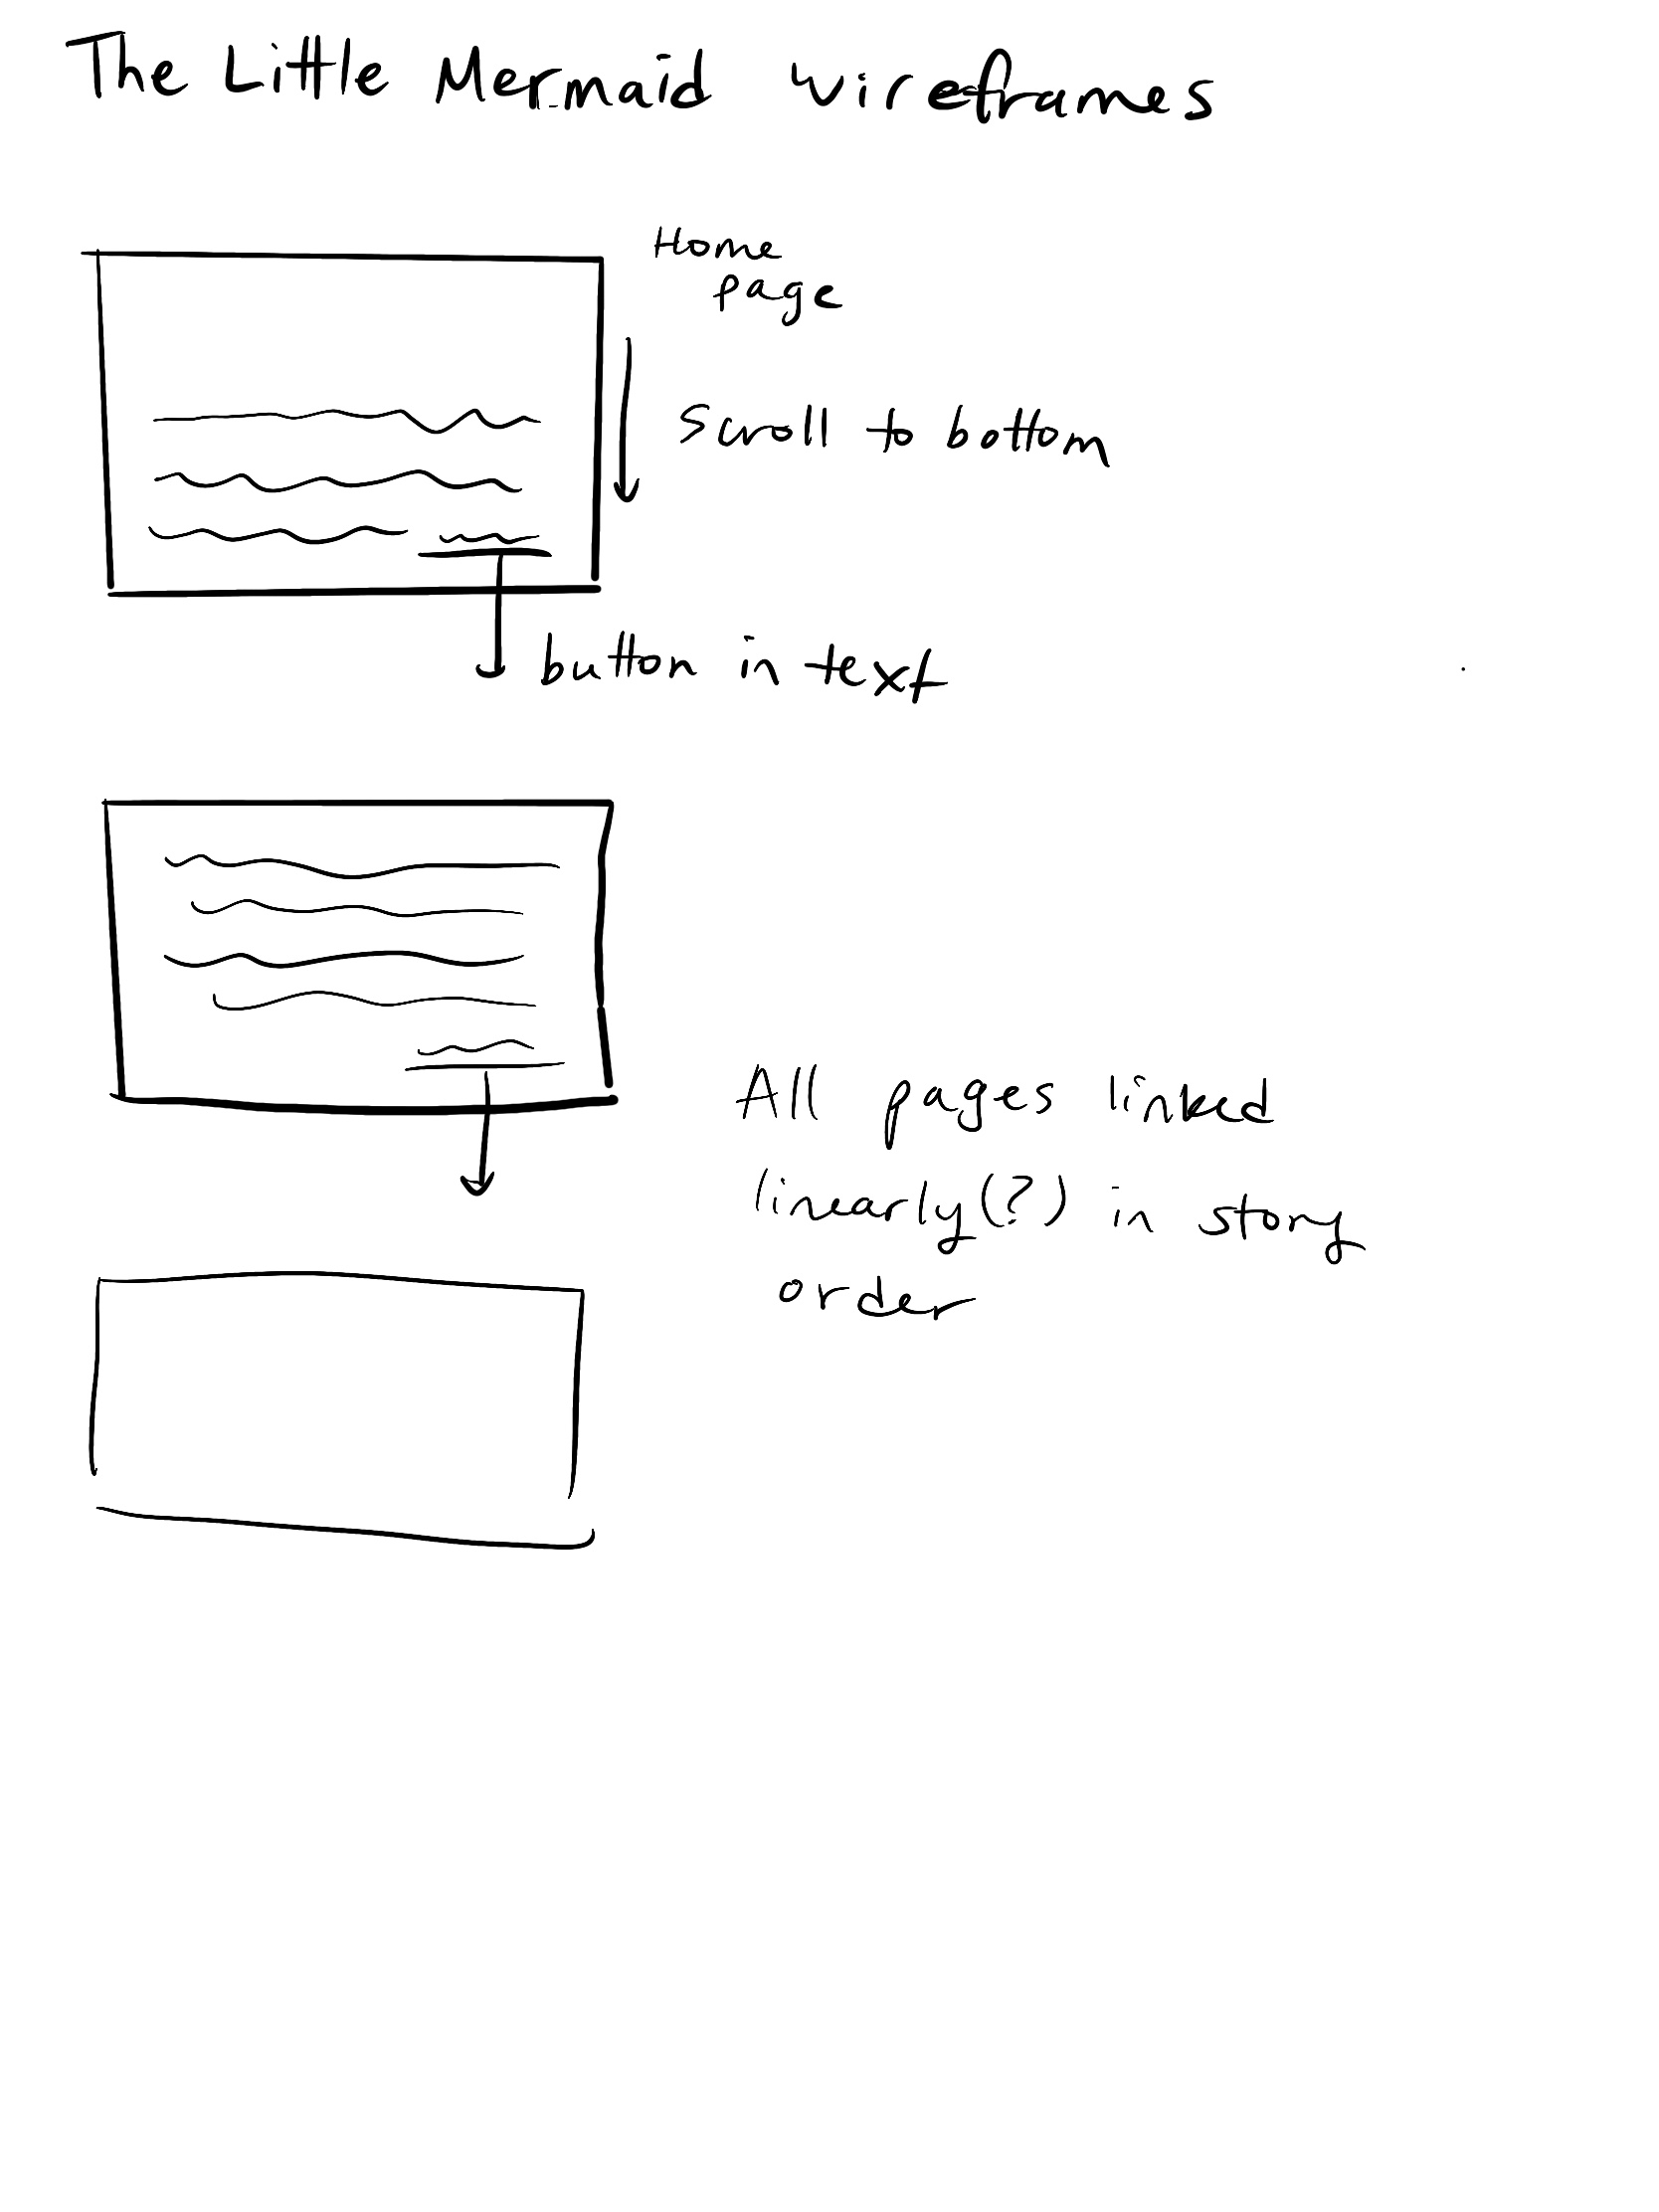 The Little Mermaid wireframes
Home
page
Scroll to bottom
button in text
All pages linked
linearly(?) in story
order